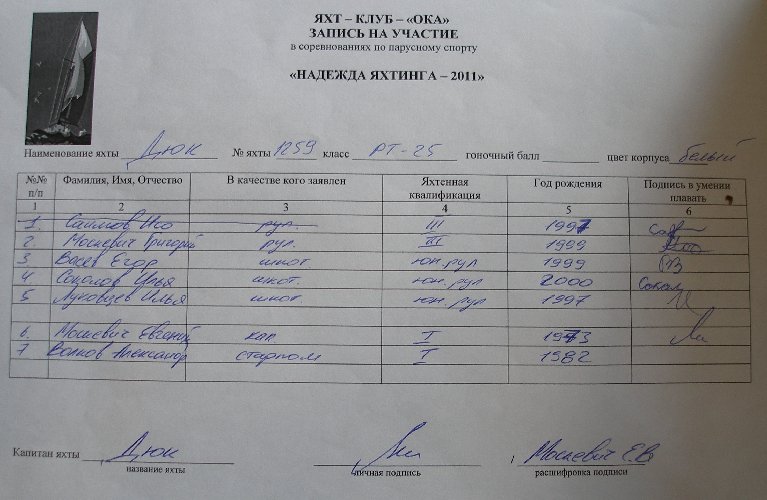 ЯХТ – КЛУБ – «ОКА»
ЗАПИСЬ НА УЧАСТИЕ
в соревнованиях по парусному спорту
«НАДЕЖДА ЯХТИНГА – 2011»
Наименование яхты Дюк № яхты 1259 класс РТ-25 гоночный балл цвет корпуса белый
№№ п/п Фамилия, Имя, Отчество В качестве кого заявлен Яхтенная квалификация Год рождения Подпись в умении плавать
1 2 3 4 5 6
1. Исо рул. III 1997
2. Москевич Григорий рул. III 1999
3 Васёв Егор шкот юн.рул 1999
4 Соколов Илья шкот. юн.рул 2000 Сокол
5 Луковцев Илья шкот. юн.рул 1997
6. Москевич Евгений кап. I 1973
7 Волков Александр старпом I 1982
Капитан яхты Дюк Москевич Е.В
название яхты личная подпись расшифровка подписи